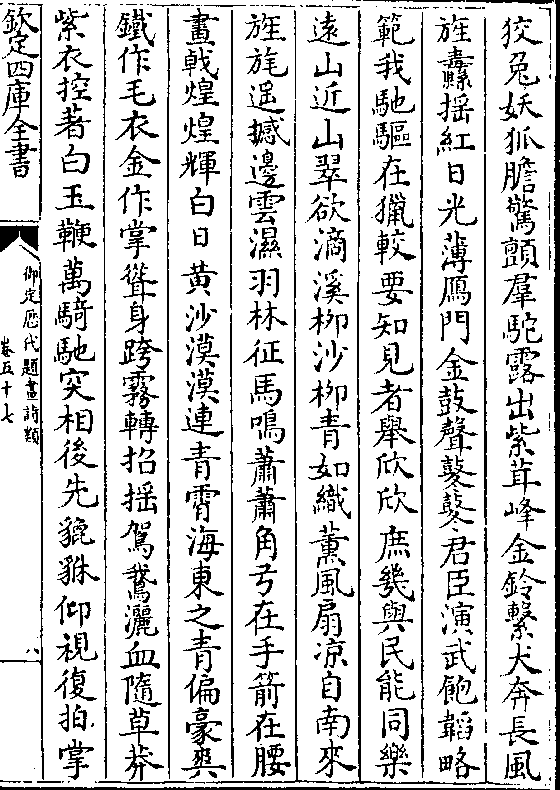 狡兔妖狐膽驚顫羣駝露出紫茸峰金鈴繫犬奔長風
旌纛揺紅日光薄鴈門金鼓聲鼕鼕君臣演武飽韜略
範我馳驅在獵較要知見者舉欣欣庶幾與民能同樂
遠山近山翠欲滴溪柳沙柳青如織薰風扇凉自南來
旌旄遥撼邊雲濕羽林征馬鳴蕭蕭角弓在手箭在腰
畫戟煌煌輝白日黄沙漠漠連青霄海東之青偏豪爽
鐵作毛衣金作掌聳身跨霧轉招揺駕鵞灑血隨草莽
紫衣控著白玉鞭萬騎馳突相後先貔貅仰視復拍掌
欽定四庫全書
御定歴代題畫詩類
卷五十七
八